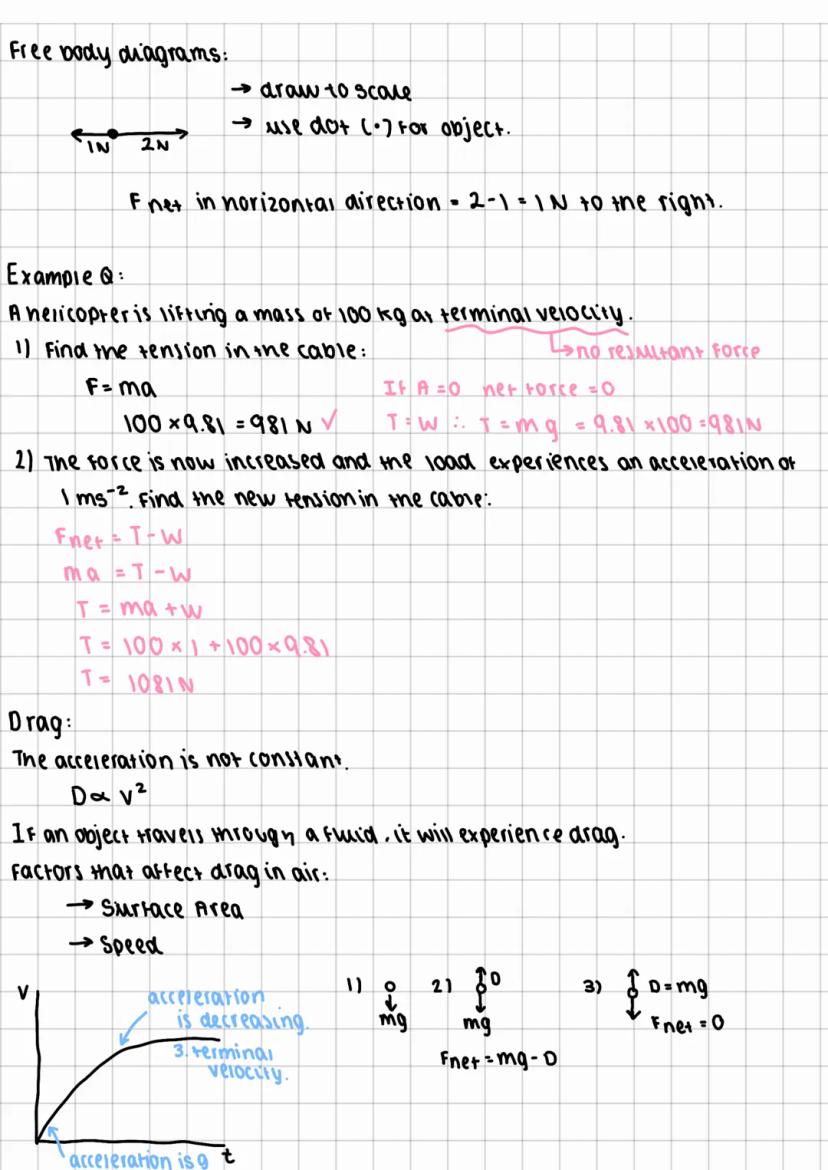 Free body diagrams:
→ draw to scale
→ use dot (•) for object.
1N 2N
F net in horizontal direction = 2-1 = 1 N to the right.
Example Q:
A helicopter is lifting a mass of 100 kg at terminal velocity.
↳ no resultant force
1) Find the tension in the cable:
F = ma
If A = 0 net force = 0
100 × 9.81 = 981 N ✓
T = W ∴ T = mg = 9.81 × 100 = 981N
2) The force is now increased and the load experiences an acceleration of
1 ms⁻². Find the new tension in the cable:
Fnet = T - W
ma = T - W
T = ma + W
T = 100 × 1 + 100 × 9.81
T = 1081 N
Drag:
The acceleration is not constant.
D ∝ V²
If an object travels through a fluid, it will experience drag.
Factors that affect drag in air:
→ Surface Area
→ Speed
V
acceleration
is decreasing.
3. terminal
velocity.
acceleration is g
t
1)
mg
2)
D
mg
Fnet = mg - D
3)
D = mg
Fnet = 0